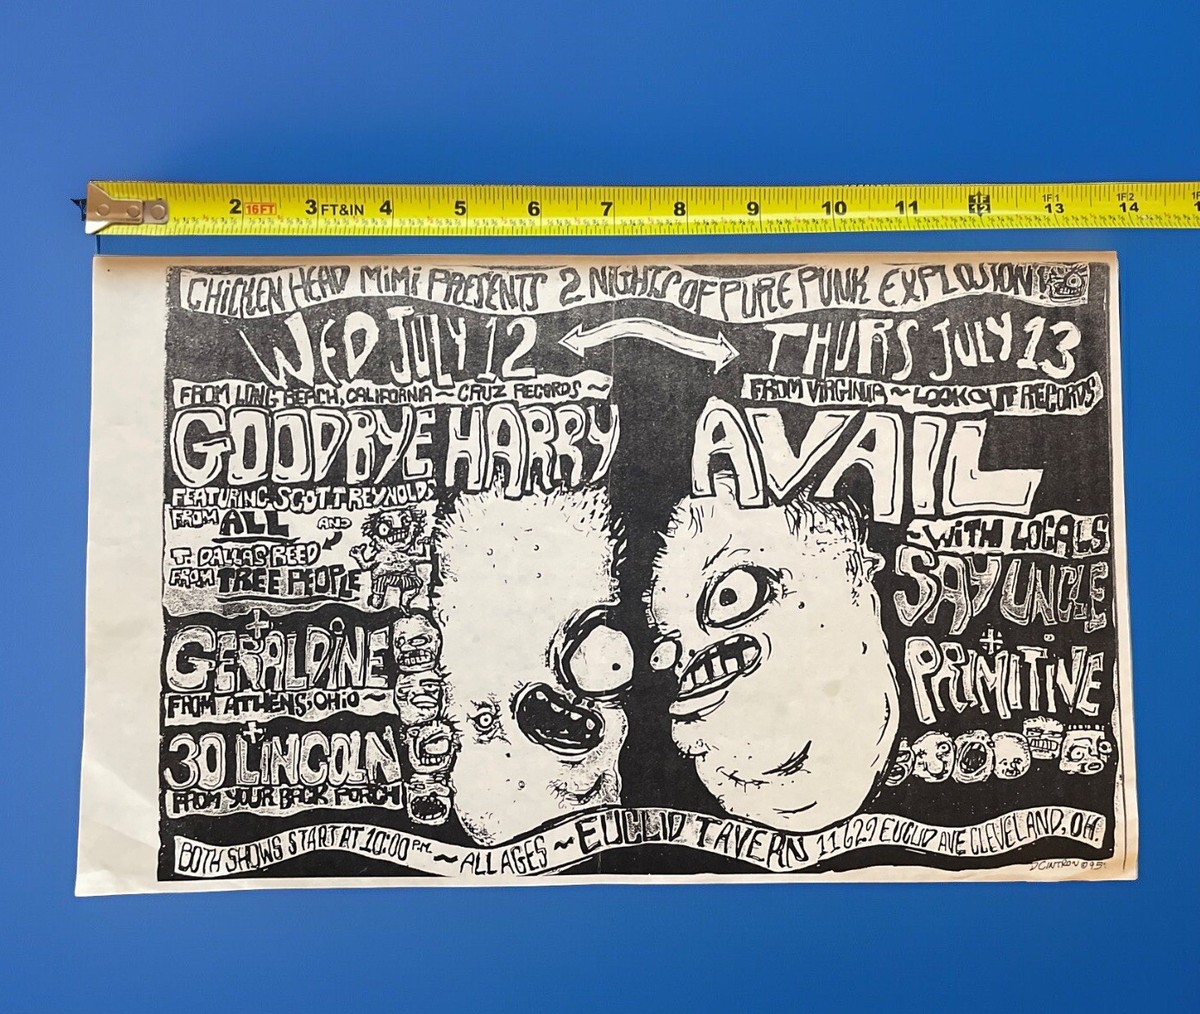 2 16FT 3 FT&IN 4 5 6 7 8 9 10 11 1F 12 1F1 13 1F2 14
CHICKEN HEAD MIMI PRESENTS 2 NIGHTS OF PURE PUNK EXPLOSION!
WED JULY 12
FROM LONG BEACH, CALIFORNIA ~ CRUZ RECORDS ~
GOODBYE HARRY
FEATURING SCOTT REYNOLDS
FROM ALL AND
T. DALLAS REED
FROM TREE PEOPLE
+
GERALDINE
FROM ATHENS, OHIO ~
+
30 LINCOLN
FROM YOUR BACK PORCH
THURS JULY 13
FROM VIRGINIA ~ LOOKOUT RECORDS
AVAIL
~WITH LOCALS
SAY UNCLE
+
PRIMITIVE
BOTH SHOWS START AT 10:00 P.M. ~ ALL AGES ~ EUCLID TAVERN 11629 EUCLID AVE CLEVELAND, OH.
DCINTRON ©95